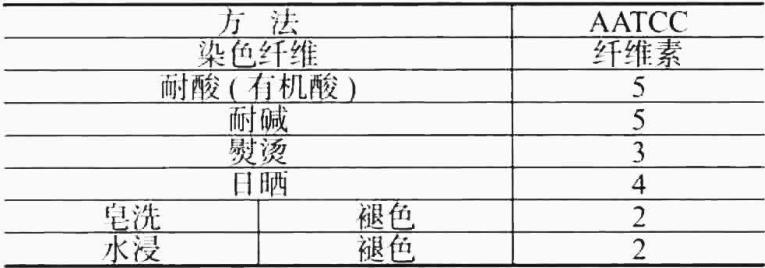 方 法 AATCC
染色纤维 纤维素
耐酸(有机酸) 5
耐碱 5
熨烫 3
日晒 4
皂洗 褪色 2
水浸 褪色 2